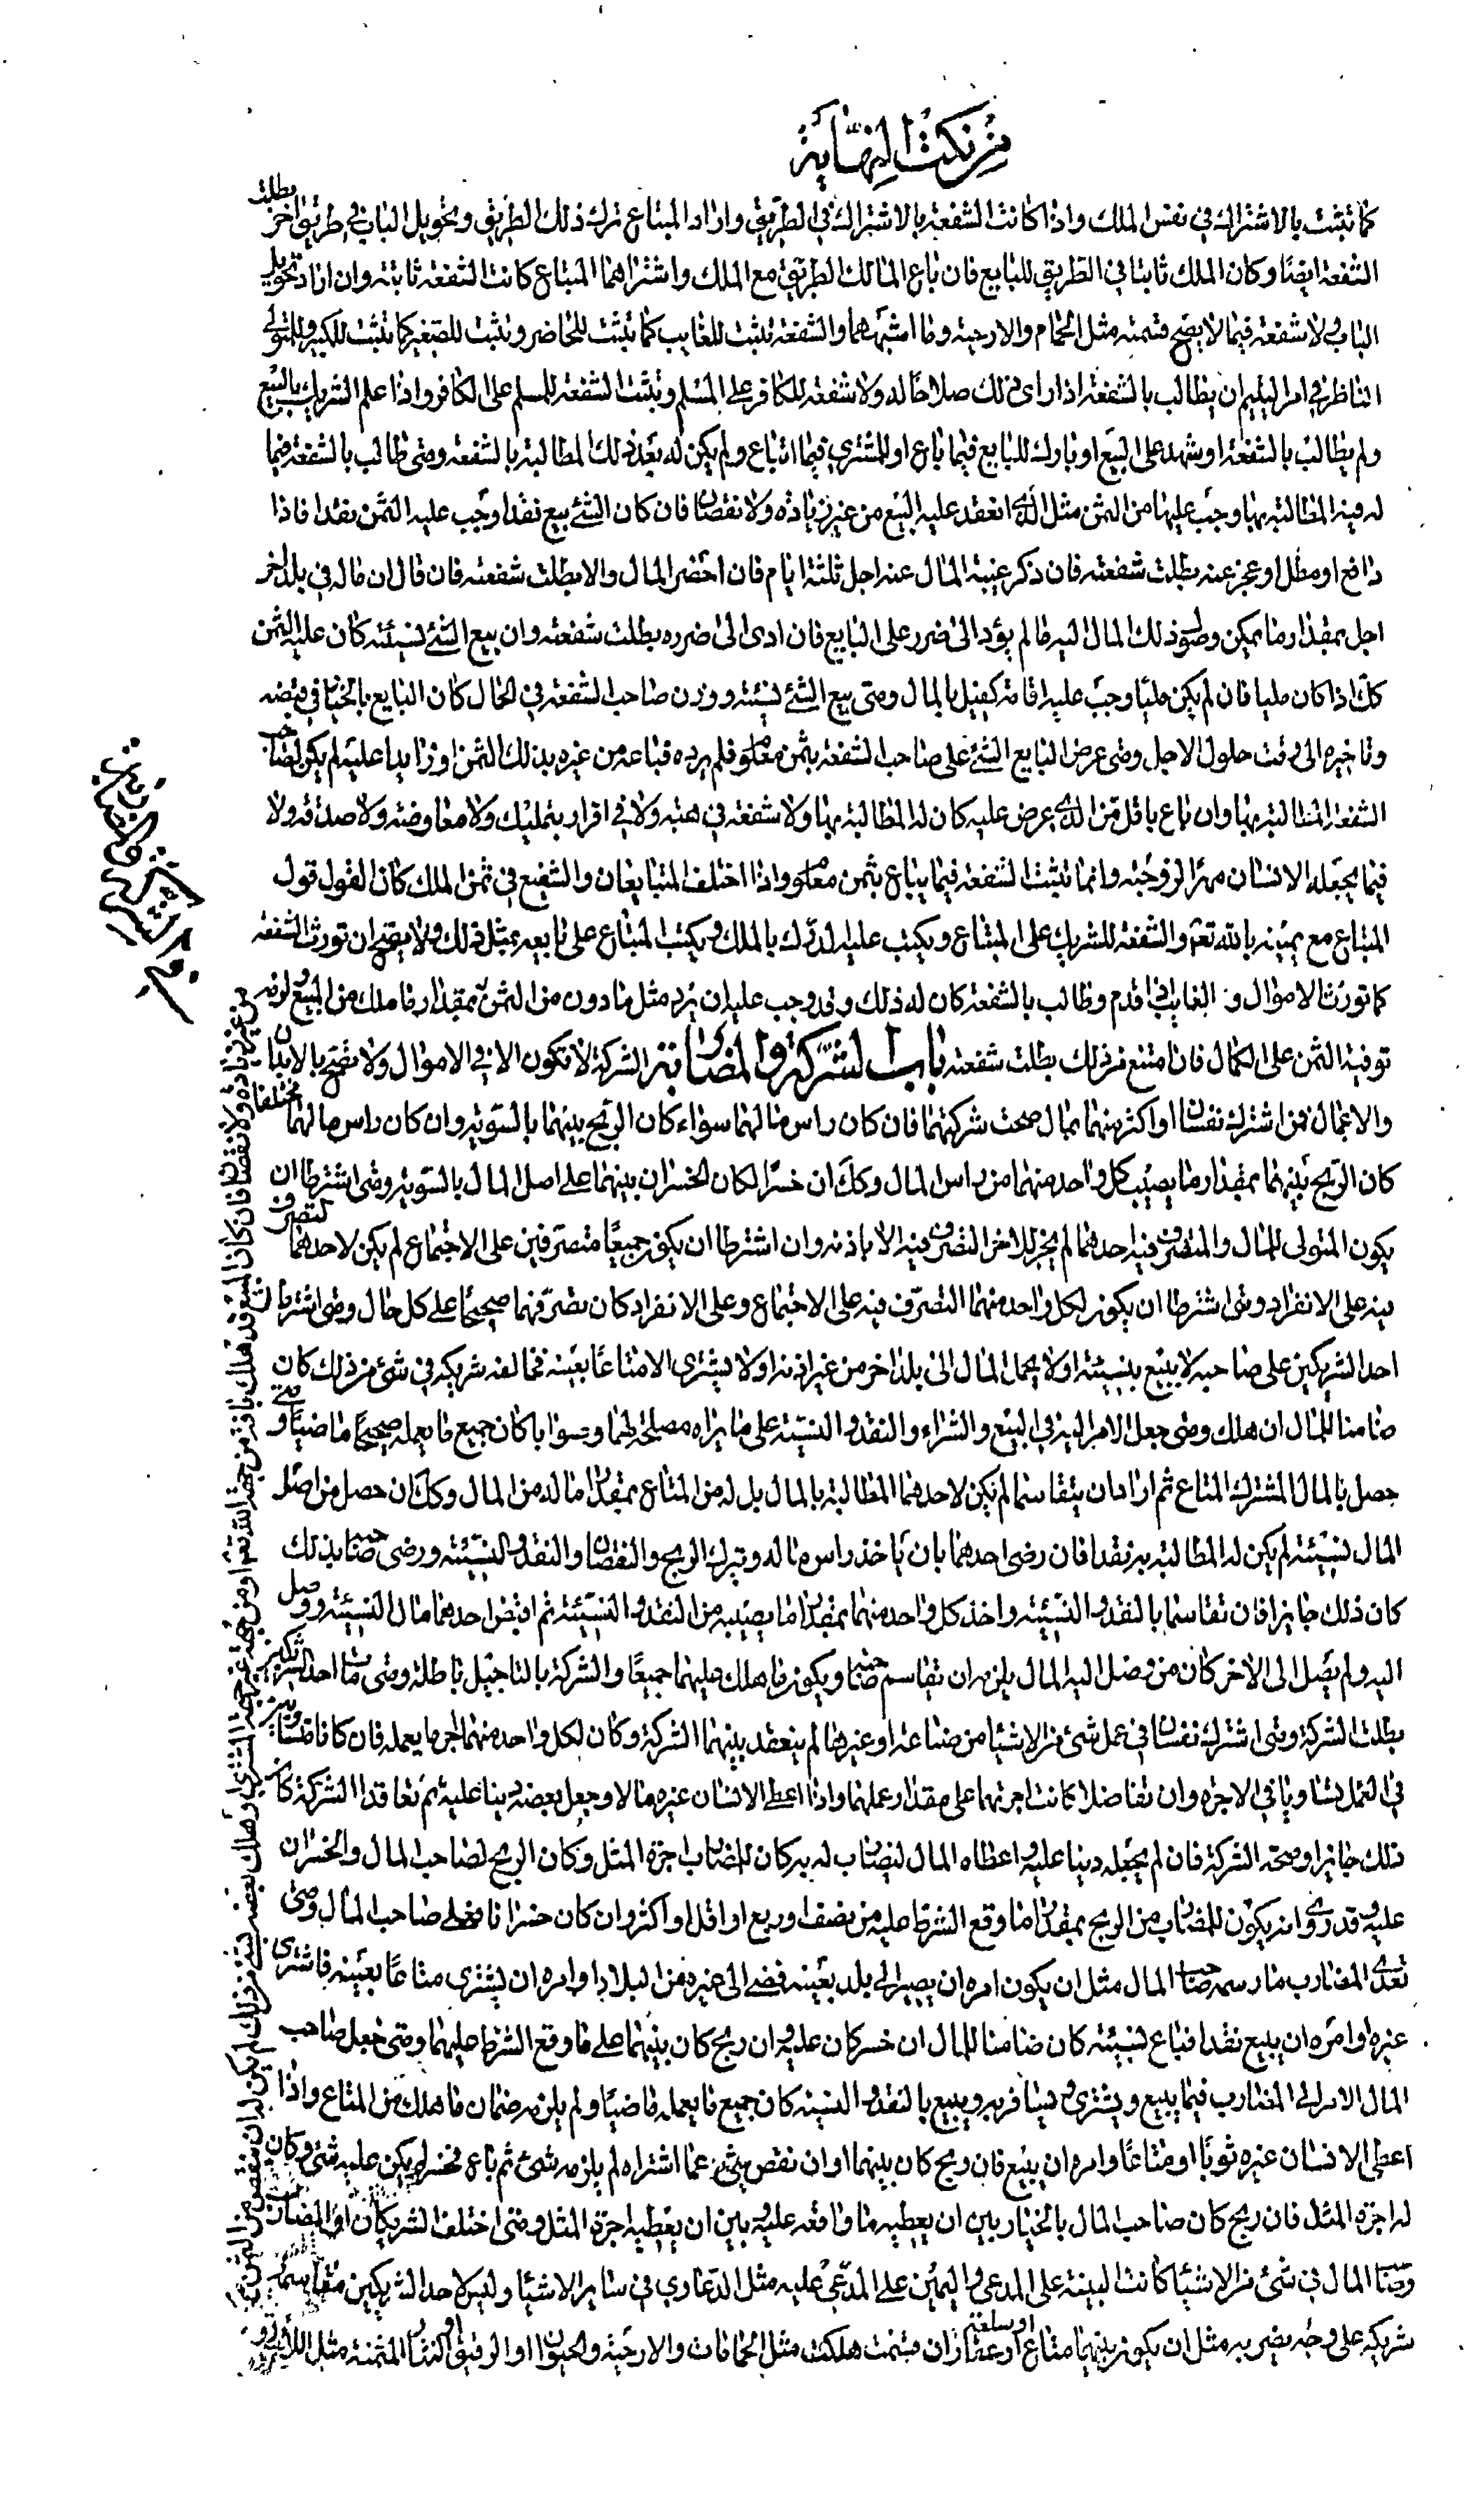 من نكت النهاية
كما تثبت بالاشتراك في نفس الملك واذا كانت الشفعة بالاشتراك في الطريق واراد المبتاع ترك ذلك الطريق وتحويل الباب في طريق اخر بطلت
الشفعة ايضا وكان الملك ثابتا في الطريق للبايع فان باع المالك الطريق مع الملك واشتراهما المبتاع كانت الشفعة ثابتة وان اراد تحويل
الباب ولا شفعة فيما لا يصح قسمته مثل الحمام والارحية وما اشبههما والشفعة تثبت للغايب كما تثبت للحاضر وتثبت للصغير كما تثبت للكبير وللمتولى
الناظر في امر اليتيم ان يطالب بالشفعة اذا راى ذلك صلاحا له ولا شفعة للكافر على المسلم وتثبت الشفعة للمسلم على الكافر واذا علم الشريك بالبيع
ولم يطالب بالشفعة او شهد على البيع او بارك للبايع فيما باع او للمشتري فيما ابتاع ولم يكن له بعد ذلك المطالبة بالشفعة ومتى طالب بالشفعة فيما
له فيه المطالبة بها وجب عليها من الثمن مثل الذي انعقد عليه البيع من غير زيادة ولا نقصان فان كان الشئ بيع نقدا وجب عليه الثمن نقدا فاذا
دافع او مطل او عجز عنه بطلت شفعته فان ذكر غيبة المال عنه اجل ثلثة ايام فان احضر المال والا بطلت شفعته فان قال ان ماله في بلد اخر
اجل بمقدار ما يمكن وصول ذلك المال اليه ما لم يؤد الى ضرر على البايع فان ادى الى ضرره بطلت شفعته وان بيع الشئ نسيئة كان عليه الثمن
كك اذا كان مليا فان لم يكن مليا وجب عليه اقامة كفيل بالمال ومتى بيع الشئ نسيئة ووزن صاحب الشفعة في الحال كان البايع بالخيار في قبضه
وتاخيره الى وقت حلول الاجل ومتى عرض البايع الشئ على صاحب الشفعة بثمن معلوم فلم يرده فباعه من غيره بذلك الثمن او زايدا عليه لم يكن لصاحب
الشفعة المطالبة بها وان باع باقل من الذي عرض عليه كان له المطالبة بها ولا شفعة في هبة ولا في اقرار بتمليك ولا معاوضة ولا صدقة ولا
فيما يجعله الانسان مهرا لزوجته وانما تثبت الشفعة فيما يباع بثمن معلوم واذا اختلف المتبايعان والشفيع في ثمن الملك كان القول قول
المبتاع مع يمينه بالله تعم والشفعة للشريك على المبتاع ويكتب عليه الدرك بالملك ويكتب المبتاع على بايعه بمثل ذلك ولا يصح ان تورث الشفعة
كما تورث الاموال و الغايب اذا قدم وطالب بالشفعة كان له ذلك و وجب عليه ان يرد مثل ما دون من الثمن بمقدار ما ملك من المبيع
توفية الثمن على الكمال فان امتنع من ذلك بطلت شفعته باب الشركة والمضاربة الشركة لا تكون الا في الاموال ولا تصح بالابدان
والاعمال فمن اشترك نفسان او اكثر منهما بمال صحت شركتهما فان كان راس مالهما سواء كان الربح بينهما بالسوية وان كان راس مالهما مختلفا
كان الربح بينهما بمقدار ما يصيب كل واحد منهما من راس المال وكك ان خسرا لكان الخسران بينهما على اصل المال بالسوية ومتى اشترطا ان
يكون المتولى للمال والمتصرف فيه احدهما لم يجز للاخر التصرف فيه الا باذنه وان اشترطا ان يكونا جميعا متصرفين على الاجتماع لم يكن لاحدهما التصرف
فيه على الانفراد ومتى اشترطا ان يكون لكل واحد منهما التصرف فيه على الاجتماع وعلى الانفراد كان تصرفهما صحيحا على كل حال ومتى اشترط
احد الشريكين على صاحبه الا يبيع بنسيئة او لا يحمل المال الى بلد اخر من غير اذنه او لا يشترى الا متاعا بعينه فخالفه شريكه في شئ من ذلك كان
ضامنا للمال ان هلك ومتى جعل الامر اليه في البيع والشراء والنقد والنسيئة على ما يراه مصلحة لهما وصوابا كان جميع ما يعمله صحيحا ماضيا ومتى
حصل بالمال المشترك المتاع ثم ارادا ان يتقاسما لم يكن لاحدهما المطالبة بالمال بل له من المتاع بمقدار ما له من المال وكك ان حصل من اصل
المال نسيئة لم يكن له المطالبة به نقدا فان رضى احدهما بان ياخذ راس ماله ويترك الربح والنقصان والنقد والنسيئة ورضى صاحبه بذلك
كان ذلك جايزا فان تقاسما بالنقد والنسيئة واخذ كل واحد منهما بمقدار ما يصيبه من النقد والنسيئة ثم اقبض احدهما مال النسيئة ووصل
اليه ولم يصل الى الاخر كان من وصل اليه المال يلزمه ان يقاسم صاحبه ويكون ما هلك عليهما جميعا والشركة بالتاجيل باطلة ومتى مات احد الشريكين
بطلت الشركة ومتى اشترك نفسان في عمل شئ من الاشياء من صناعة او غيرها لم ينعقد بينهما الشركة وكان لكل واحد منهما اجر ما يعمله فان كانا متساويين
في العمل تساويا في الاجرة وان تفاضلا كانت اجرتهما على مقدار عملهما واذا اعطى الانسان غيره مالا وجعل بعضه دينا عليه ثم تعاقدا الشركة كان
ذلك جايزا وصحت الشركة فان لم يجعله دينا عليه واعطاه المال ليضارب له به كان للمضارب اجرة المثل وكان الربح لصاحب المال والخسران
عليه وقد روى انه يكون للمضارب من الربح بمقدار ما وقع الشرط عليه من نصف او ربع او اقل او اكثر وان كان خسرانا فعلى صاحب المال ومتى
تعدى المضارب ما رسمه صاحب المال مثل ان يكون امره ان يصير الى بلد بعينه فمضى الى غيره من البلاد او امره ان يشترى متاعا بعينه فاشترى
غيره او امره ان يبيع نقدا فباع نسيئة كان ضامنا للمال ان خسر كان عليه وان ربح كان بينهما على ما وقع الشرط عليهما ومتى جعل صاحب
المال الامر الى المضارب فيما يبيع ويشترى ويسافر به ويبيع بالنقد والنسيئة كان جميع ما يعمله ماضيا ولم يلزمه ضمان ما هلك من المتاع واذا
اعطى الانسان غيره ثوبا او متاعا وامره ان يبيع فان ربح كان بينهما وان نقص بشئ عما اشتراه لم يلزمه شئ ثم باع فخسر لم يكن عليه شئ وكان
له اجرة المثل فان ربح كان صاحب المال بالخيار بين ان يعطيه ما واقفه عليه وبين ان يعطيه اجرة المثل ومتى اختلف الشريكان او المضارب
وصاحب المال في شئ من الاشياء كانت البينة على المدعى واليمين على المدعى عليه مثل الدعاوى في ساير الاشياء وليس لاحد الشريكين مقاسمة
شريكه على وجه يضر به مثل ان يكون بينهما متاع او سلعة او عقار ان قسمت هلكت مثل الحمامات والارحية والحيوان او الرقيق او الثياب المثمنة مثل
من غير زيادة ولا نقصان فان كان المبيع قد هلك بافة من جهة الله تعم او من جهة غير جهة المشترى او هلك بعضه بشئ من ذلك لم يكن له ان ينقص من الثمن